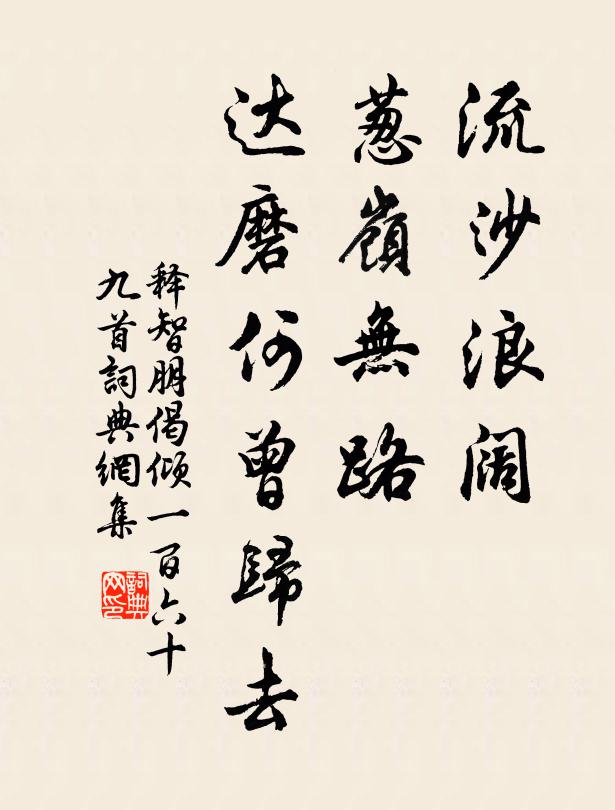 流沙浪阔
葱嶺無路
达磨何曾歸去
释智朋偈倾一百六十
九首詞典網集
詞典网印